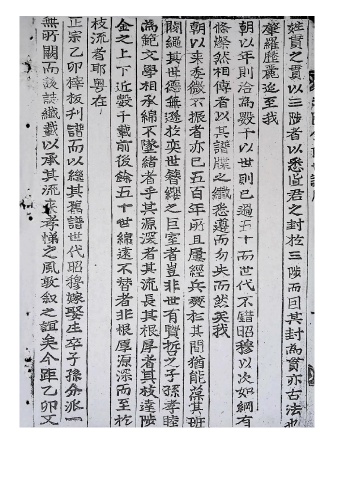 姓貫之貫以三陟者以悉直君之封於三陟而因其封為貫亦古法也
羅麗迄至我
朝以年則洽為數千以世則已過五十而世代不錯昭穆以次如綱有
條燦然相傳者以其譜牒之纖悉遵而勿失而然矣我
朝以來委微不振者亦已五百年所且屢經兵燹於其間猶能葆其班
閥繩其世德無遜於奕世簪纓之巨室者豈非世有賢哲之子孫孝睦
為範文學相承綿不墜緒者乎其源深者其流長其根厚者其枝達陟
金之上下近數千載前後餘五十世綿遠不替者非根厚源深而至於
枝流者耶粤在
正宗乙卯梓板刊譜而以繼其舊譜世代昭穆嫁娶生卒子孫分派一
無所闕而後誌纖載以承其流來孝悌之風敦叙之誼矣今距乙卯又